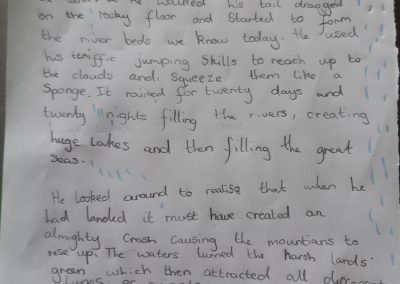 he walked his tail dragged
on the rocky floor and started to form
the river beds we know today. He used
his teriffic jumping skills to reach up to
the clouds and squeeze them like a
sponge. It rained for twenty days and
twenty nights filling the rivers, creating
huge lakes and then filling the great
seas.
He looked around to realise that when he
had landed it must have created an
almighty crash causing the mountians to
rise up. The waters turned the harsh lands
green which then attracted all different